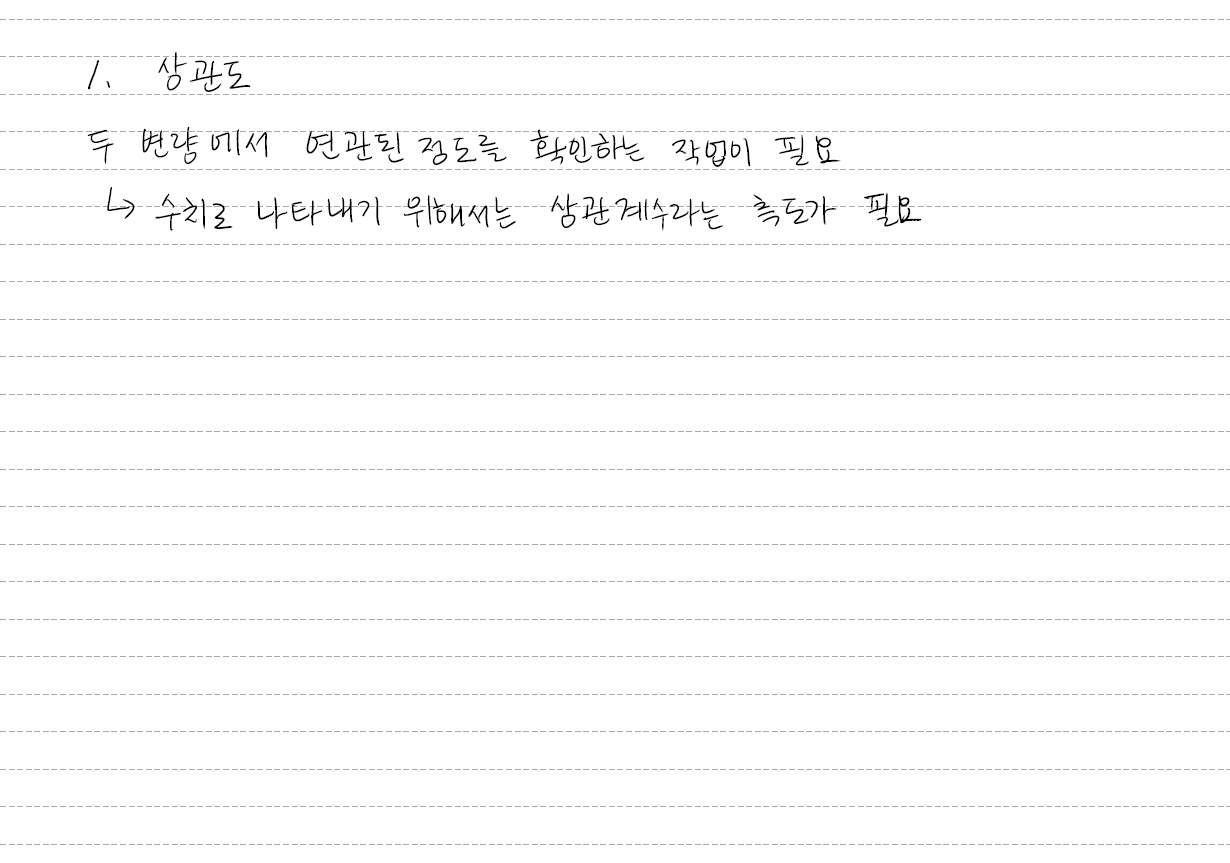 1. 상관도
두 변량에서 연관된 정도를 확인하는 작업이 필요
↳ 수치로 나타내기 위해서는 상관계수라는 척도가 필요